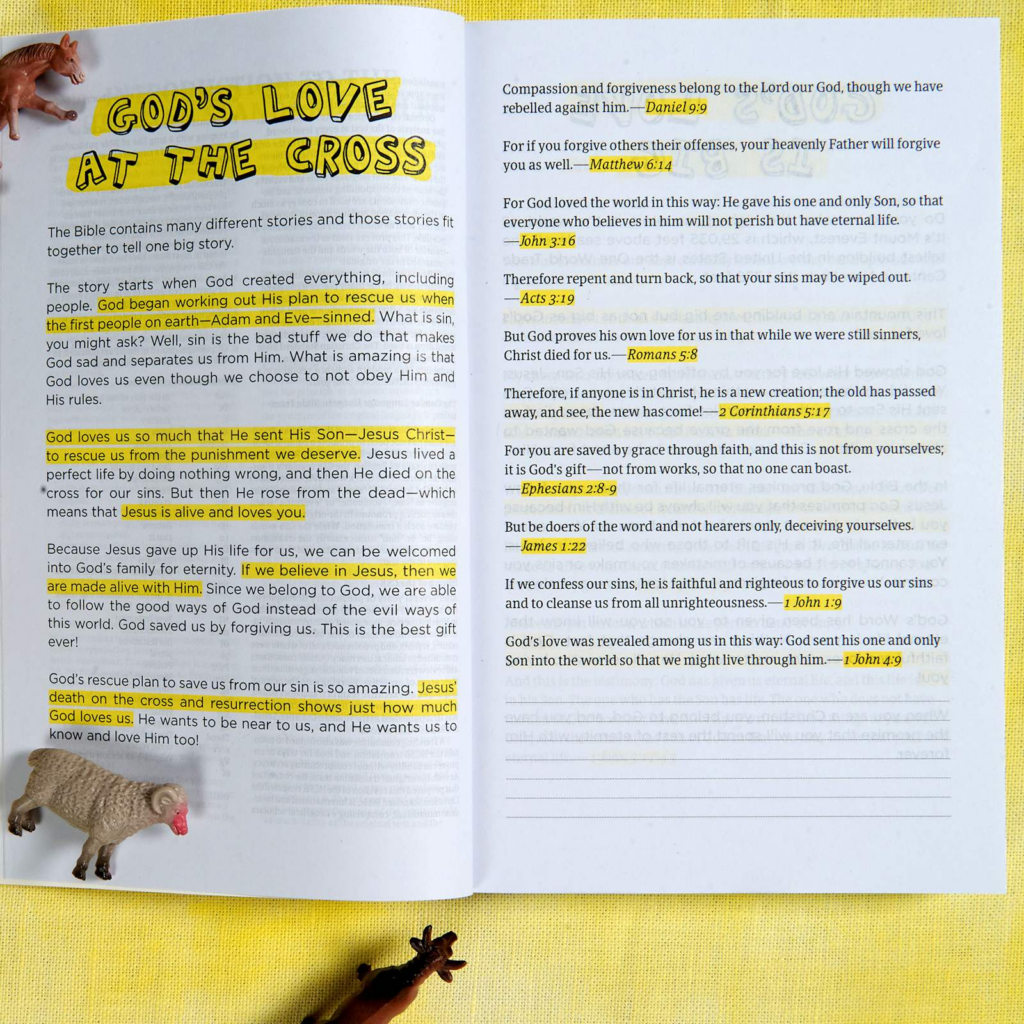 GOD'S LOVE
AT THE CROSS
The Bible contains many different stories and those stories fit
together to tell one big story.
The story starts when God created everything, including
people. God began working out His plan to rescue us when
the first people on earth—Adam and Eve—sinned. What is sin,
you might ask? Well, sin is the bad stuff we do that makes
God sad and separates us from Him. What is amazing is that
God loves us even though we choose to not obey Him and
His rules.
God loves us so much that He sent His Son—Jesus Christ—
to rescue us from the punishment we deserve. Jesus lived a
perfect life by doing nothing wrong, and then He died on the
cross for our sins. But then He rose from the dead—which
means that Jesus is alive and loves you.
Because Jesus gave up His life for us, we can be welcomed
into God's family for eternity. If we believe in Jesus, then we
are made alive with Him. Since we belong to God, we are able
to follow the good ways of God instead of the evil ways of
this world. God saved us by forgiving us. This is the best gift
ever!
God's rescue plan to save us from our sin is so amazing. Jesus'
death on the cross and resurrection shows just how much
God loves us. He wants to be near to us, and He wants us to
know and love Him too!
Compassion and forgiveness belong to the Lord our God, though we have
rebelled against him.—Daniel 9:9
For if you forgive others their offenses, your heavenly Father will forgive
you as well.—Matthew 6:14
For God loved the world in this way: He gave his one and only Son, so that
everyone who believes in him will not perish but have eternal life.
—John 3:16
Therefore repent and turn back, so that your sins may be wiped out.
—Acts 3:19
But God proves his own love for us in that while we were still sinners,
Christ died for us.—Romans 5:8
Therefore, if anyone is in Christ, he is a new creation; the old has passed
away, and see, the new has come!—2 Corinthians 5:17
For you are saved by grace through faith, and this is not from yourselves;
it is God's gift—not from works, so that no one can boast.
—Ephesians 2:8-9
But be doers of the word and not hearers only, deceiving yourselves.
—James 1:22
If we confess our sins, he is faithful and righteous to forgive us our sins
and to cleanse us from all unrighteousness.—1 John 1:9
God's love was revealed among us in this way: God sent his one and only
Son into the world so that we might live through him.—1 John 4:9